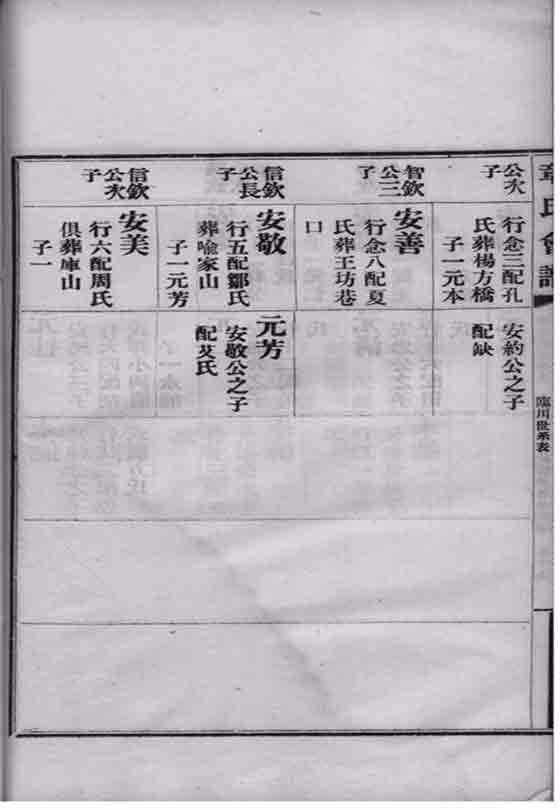 章氏會譜
臨川世系表
公次
子
行念三配孔
氏葬楊方橋
子一元本
安約公之子
配缺
智欽
公三
子
安善
行念八配夏
氏葬王坊巷
口
信欽
公長
子
安敬
行五配鄒氏
葬喻家山
子一元芳
元芳
安敬公之子
配艾氏
信欽
公次
子
安美
行六配周氏
俱葬庫山
子一